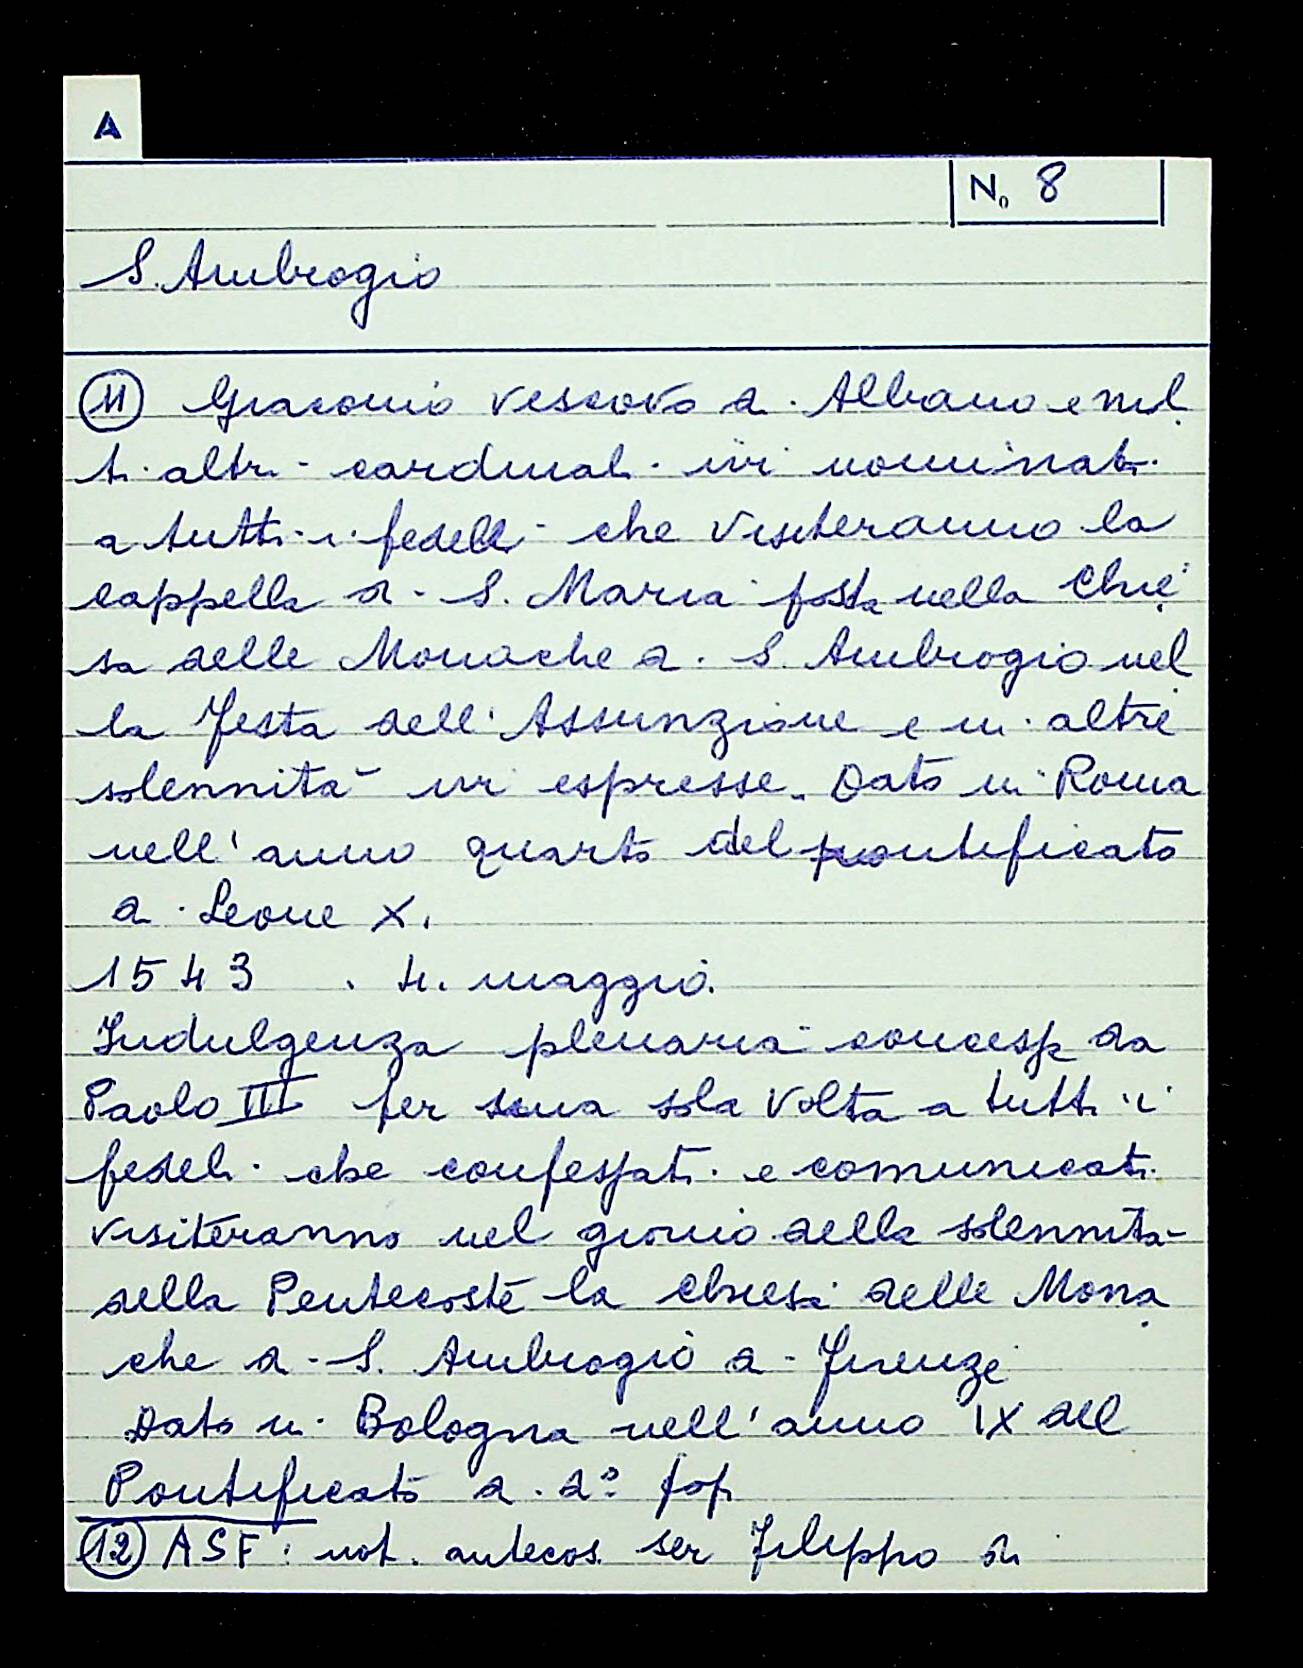 A
No 8
S. Ambrogio
11 Giacomo vescovo di Albano e mol
ti altri cardinali ivi nominati
a tutti i fedeli che visiteranno la
cappella di S. Maria posta nella Chie
sa delle Monache di S. Ambrogio nel
la Festa dell'Assunzione e in altre
solennità ivi espresse. Dato in Roma
nell'anno quarto del pontificato
di Leone X.
1543 . 4. maggio.
Indulgenza plenaria concessa da
Paolo III per una sola volta a tutti i
fedeli che confessati e comunicati
visiteranno nel giorno della solennità
della Pentecoste la chiesa delle Mona
che di S. Ambrogio di Firenze
Dato in Bologna nell'anno IX del
Pontificato di do pp
12 ASF: not. antecos. ser Filippo di